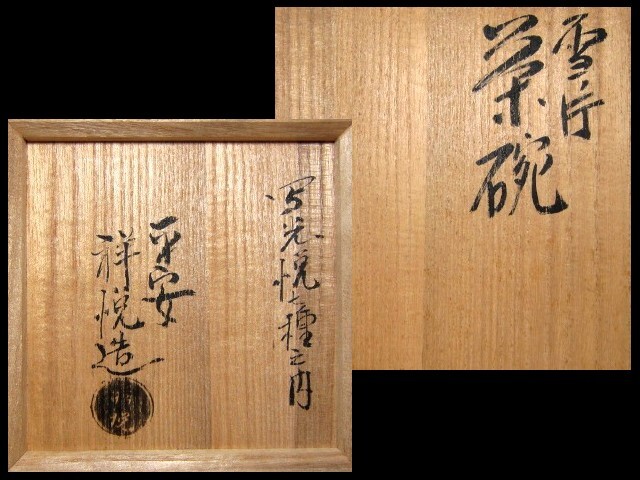 雪片
茶碗
写光悦七種之内
平安
祥悦造